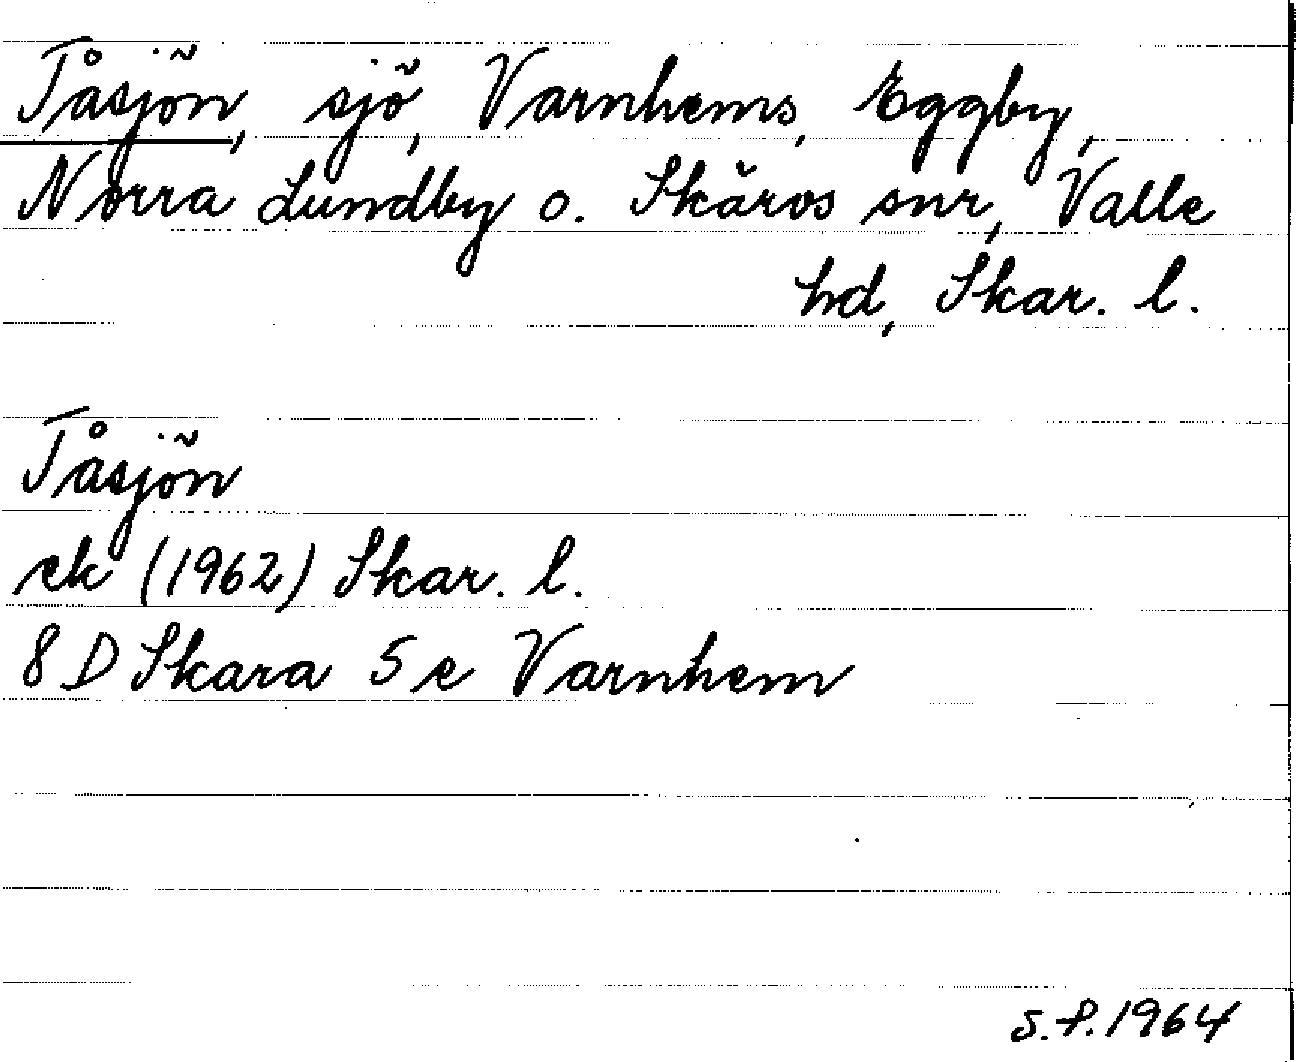 Tåsjön, sjö, Varnhems, Eggby,
Norra Lundby o. Skärvs snr, Valle
hd, Skar. l.
Tåsjön
ek (1962) Skar. l.
8 D Skara 5 e Varnhem
S.F. 1964